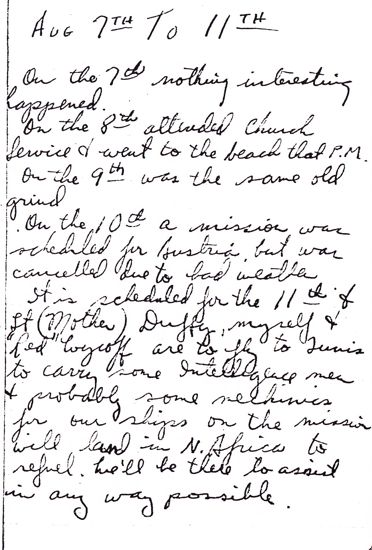 AUG 7TH TO 11TH
On the 7th nothing interesting
happened.
On the 8th attended Church
Service & went to the beach that P.M.
On the 9th was the same old
grind
On the 10th a mission was
scheduled for Austria, but was
cancelled due to bad weather
It is scheduled for the 11th &
Lt (Mother) Duffy, myself &
Red are to fly to Tunis
to carry some Intelligence men
& probably some mechinics
for our ships on the mission
will land in N. Africa to
refuel. We'll be there to assist
in any way possible.